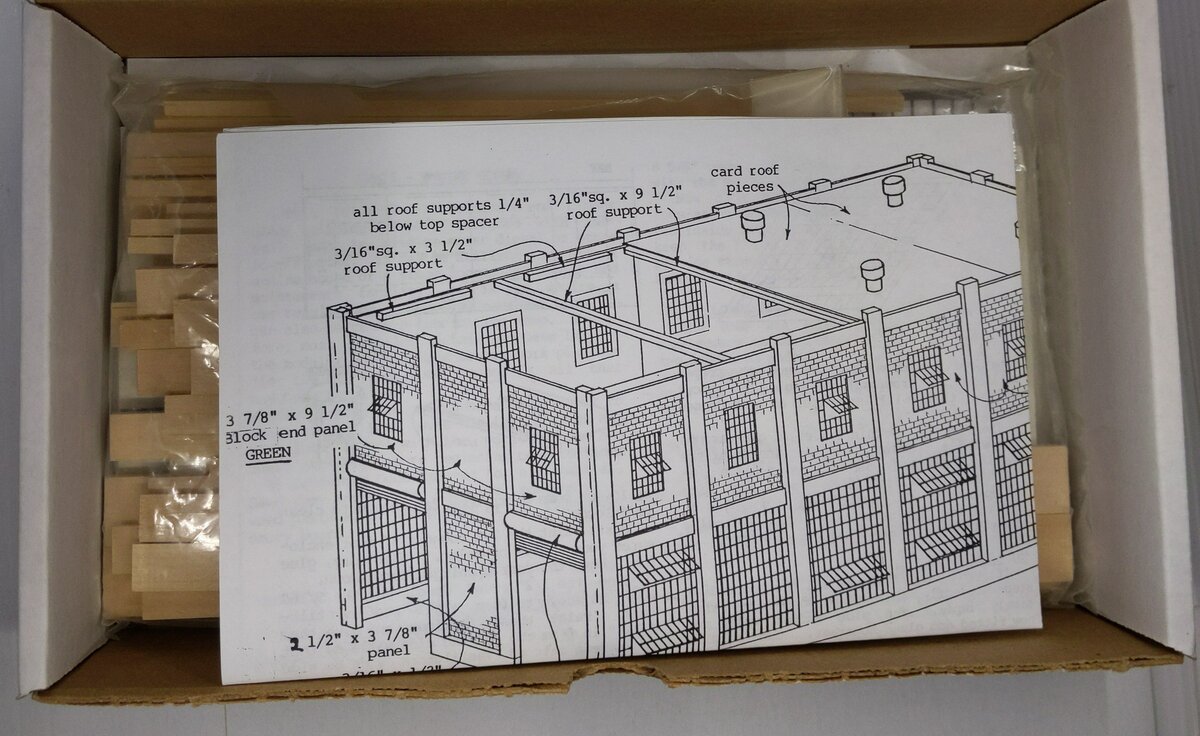 all roof supports 1/4"
below top spacer
3/16"sq. x 9 1/2"
roof support
card roof
pieces
3/16"sq. x 3 1/2"
roof support
3 7/8" x 9 1/2"
Block end panel
GREEN
2 1/2" x 3 7/8"
panel